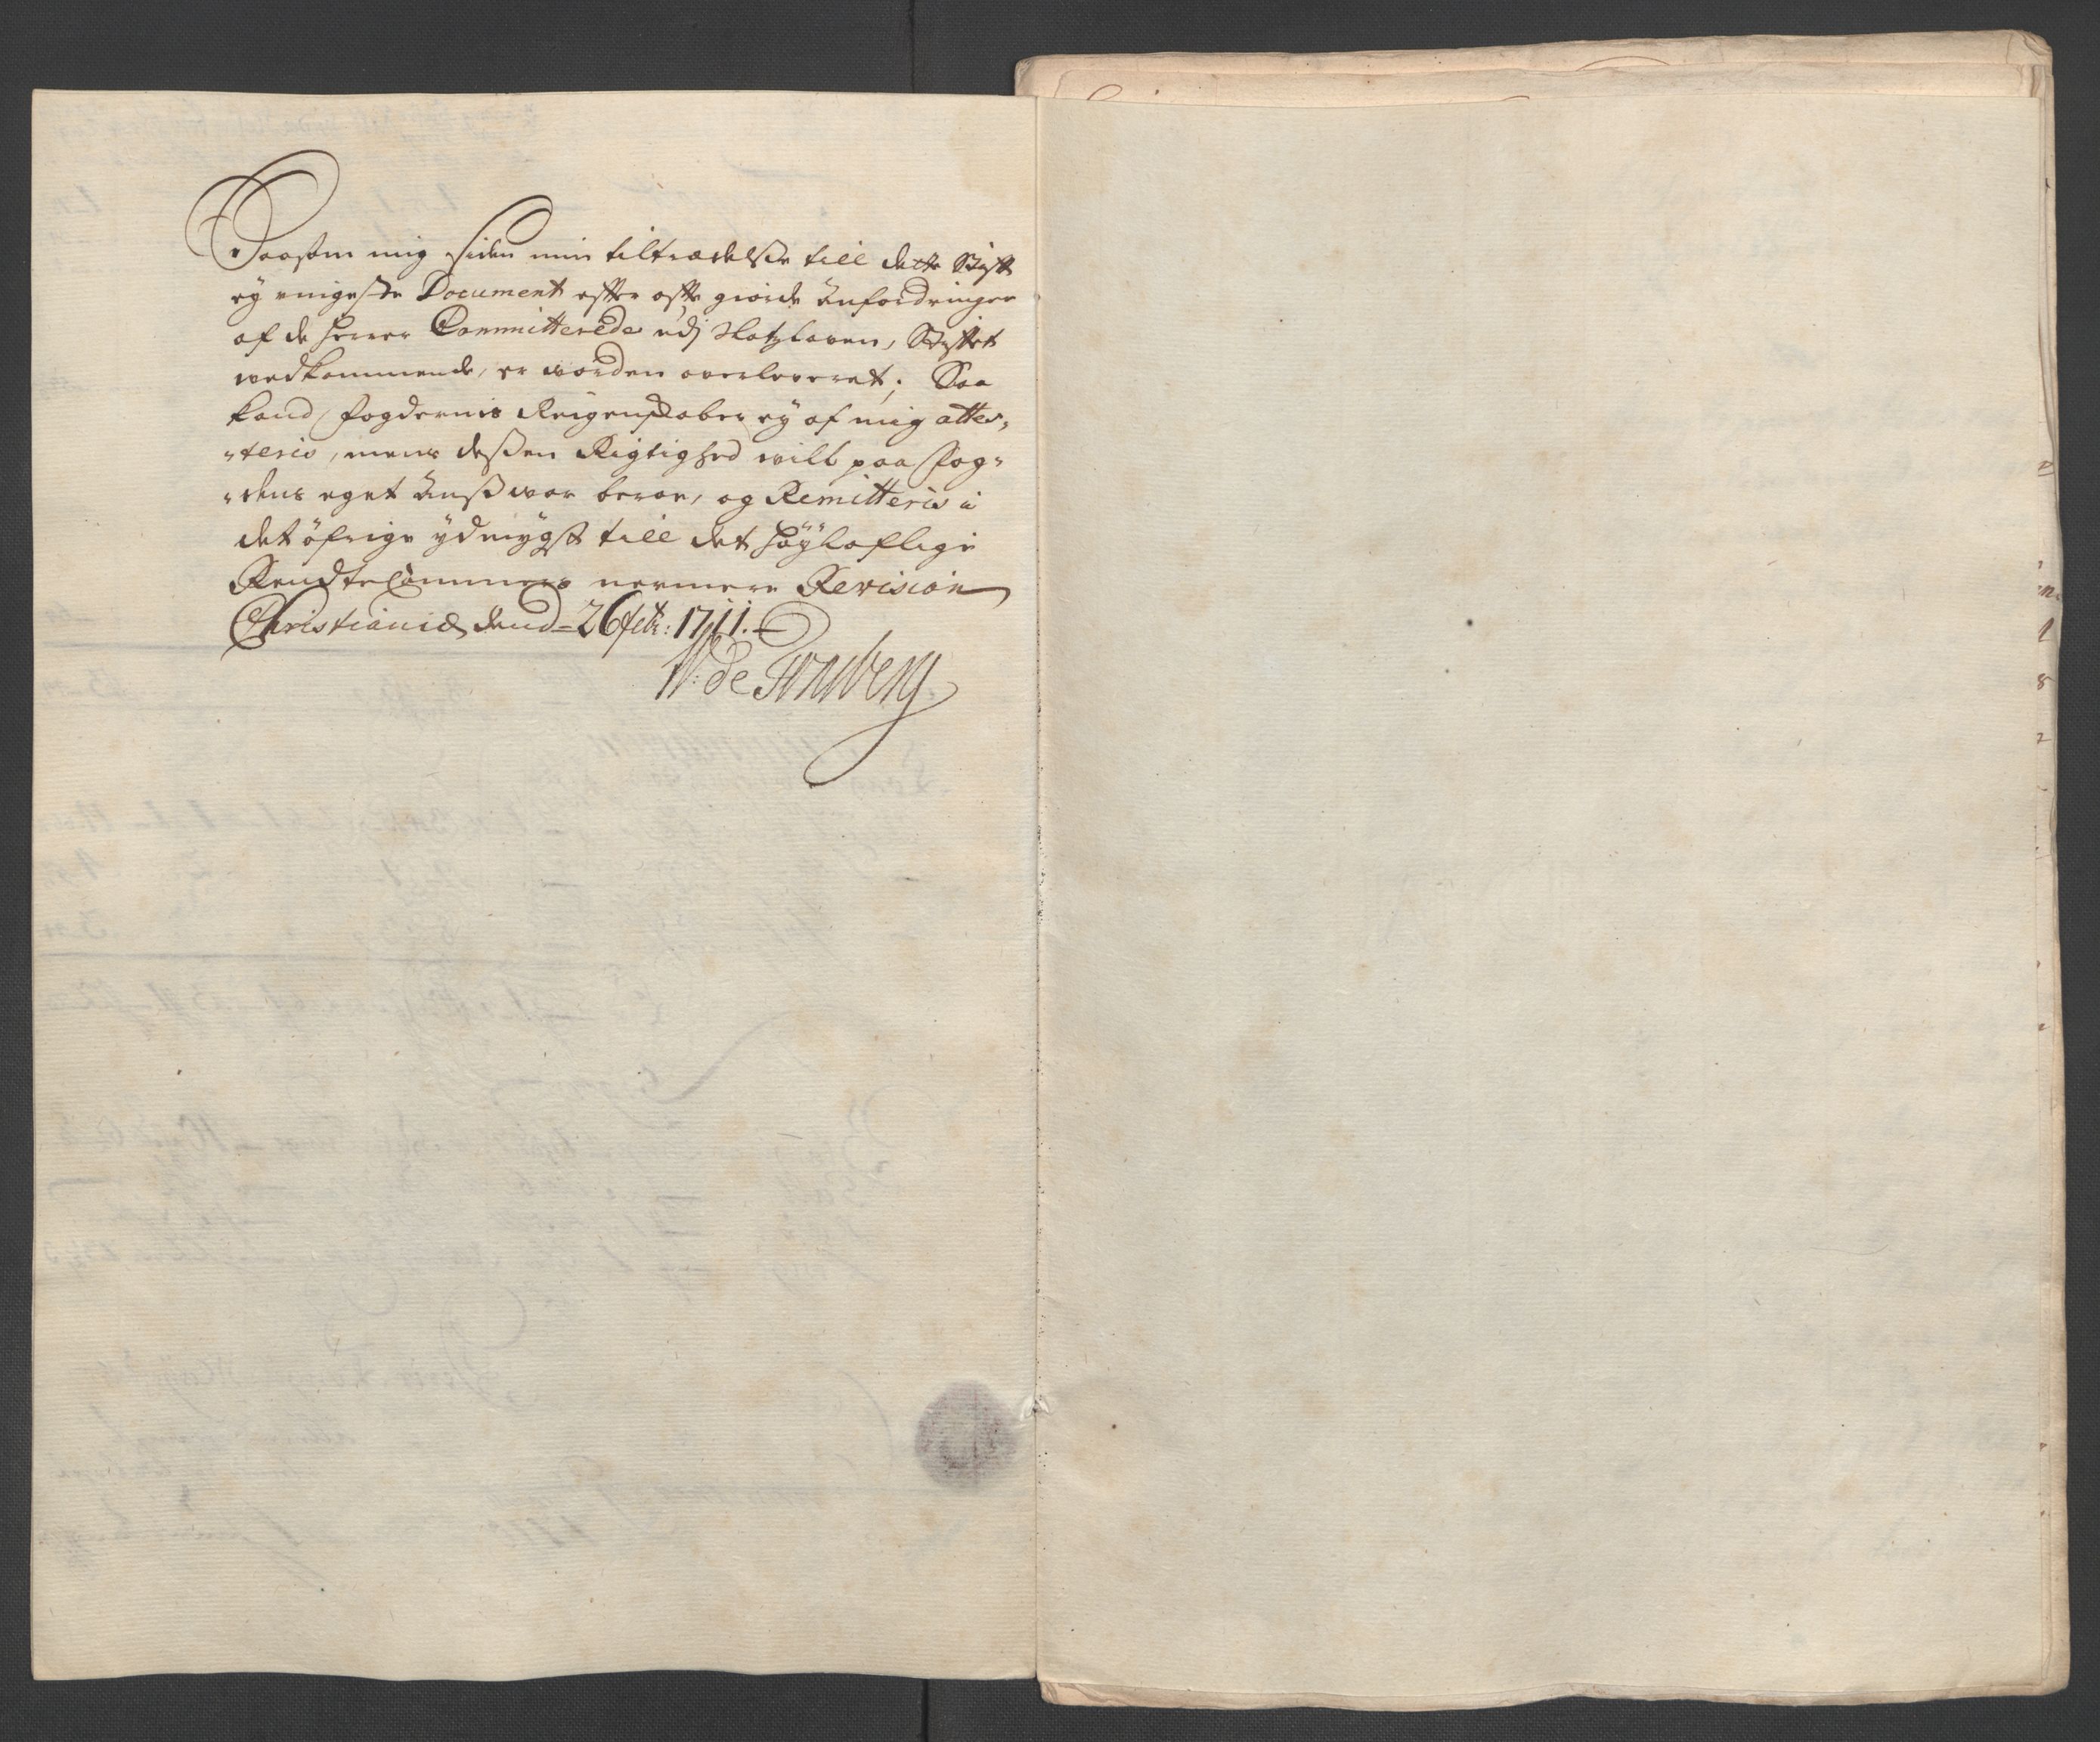 Saasom mig siden min tiltrædelse till dette Stift
ej enigeste Document efter ofte giorde Anfordringer
af de Herrer Committerede udj Slotzloven, Stiftet
vedkommende, er worden overleveret; Saa
kand Fogdernis Reigenskaber ej af mig attes-
-teris, mens deßen Rigtighed will paa Fog-
-dens eget Ansvar beroe, og Remitteris i
det öfrige ydmygst till det Höyloflige
RendteCammers nermere Revision
Christianiæ dend 26 febr: 1711.
W: de Tonsberg